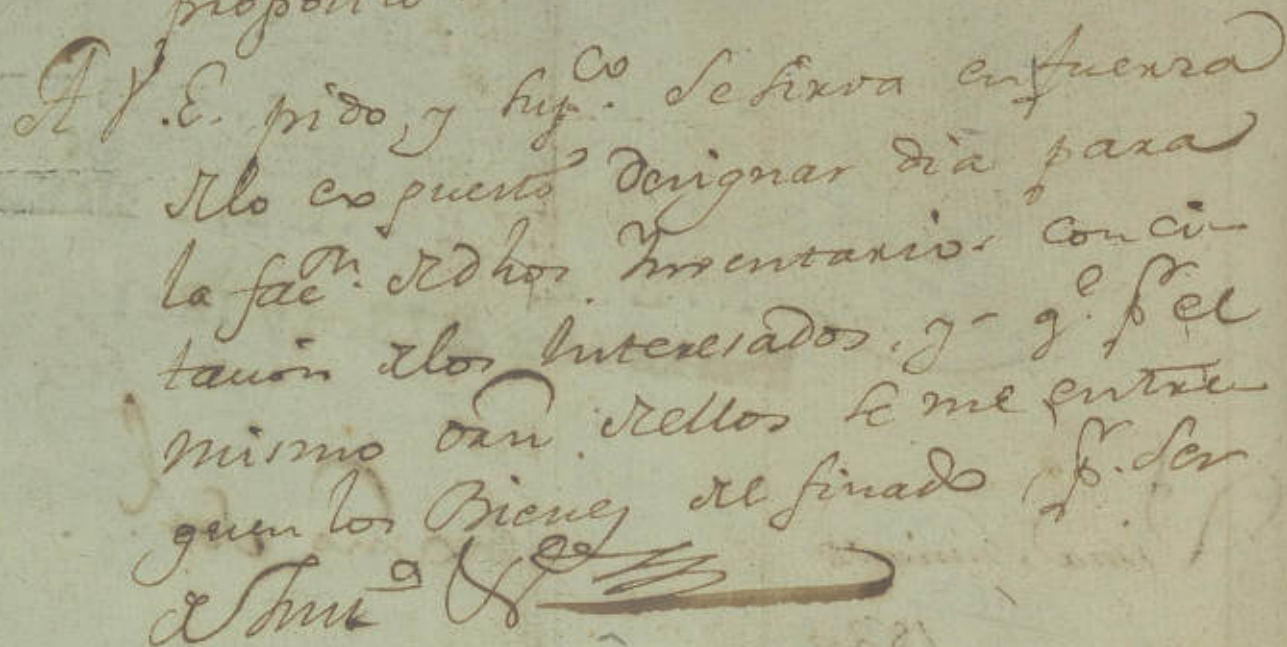 proposito
A V.E. pido, y sup.co se sirva en fuerza
delo expuesto designar dia para
la fac.n dedhos Inventarios con ci-
tacion delos Interesados, y q.e p.r el
mismo orn dellos se me entre-
guen los Bienes del finado, p.r ser
de Just.a &.a